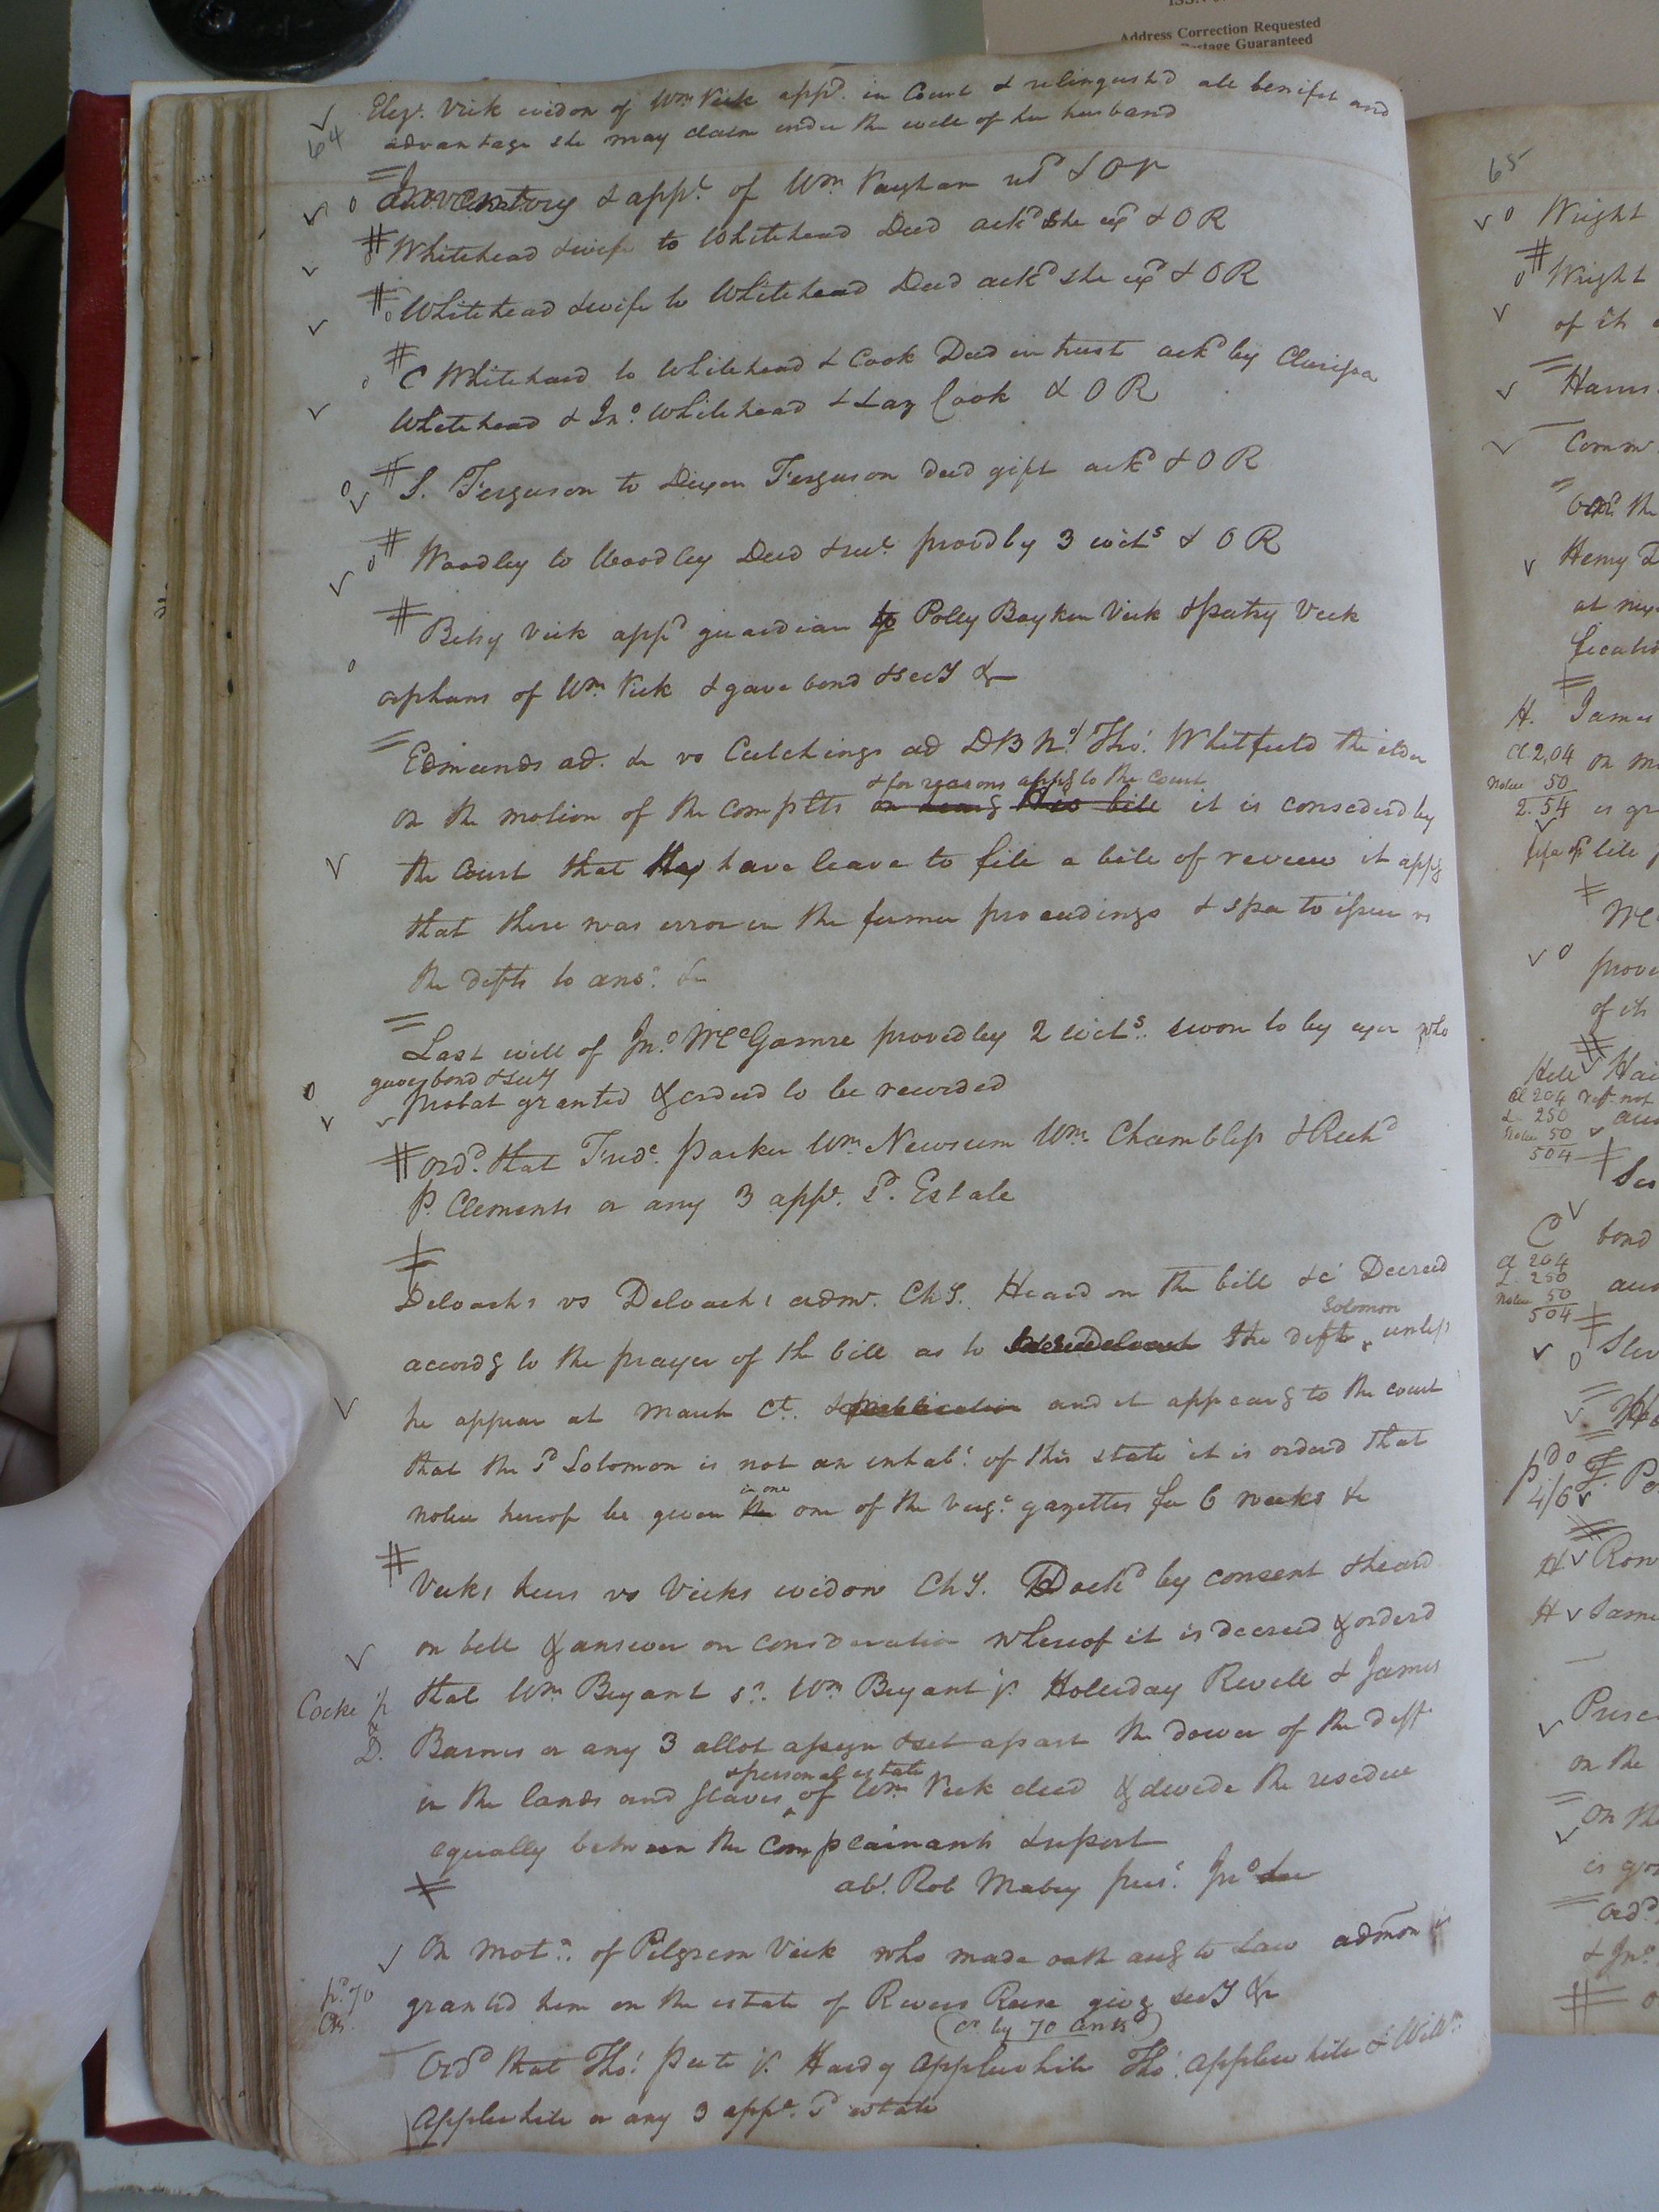 Address Correction Requested
Postage Guaranteed
64
Eliz. Vick widow of Wm Vick appd. in Court & relinquishd all benifit and
advantage she may claim under the will of her husband
Inventory & appt. of Wm. Vaughan retd & Or
Whitehead & wife to Whitehead Deed ackd she exd & O R
Whitehead & wife to Whitehead Deed ackd she exd & O R
C Whitehead to Whitehead & Cook Deed in trust ackd by Clarissa
Whitehead & Jno. Whitehead & Laz Cook & O R
S. Ferguson to Dixon Ferguson deed gift ackd & O R
Woodley to Woodley Deed & rect. provd by 3 wits & O R
Betsy Vick appd guardian to Polly Boykin Vick & patsy Vick
orphans of Wm. Vick & gave bond & secy &
Edmunds ad. &c vs Cutchings ad DB N. of Tho. Whitfield the elder
& for reasons appg to the Court
on the motion of the complts on hearg this bill it is considerd by
the Court that they have leave to file a bill of review it appg
that there was error in the former proceedings & spa to issue vs
the defts to ansr. &c
Last will of Jno. McGamre proved by 2 wits. sworn to by exor who
gave bond & secy
probat granted & orderd to be recorded
Ordd. that Fredc. Parker Wm. Newsum Wm. Chambliss & Richd
P. Clements or any 3 appr. sd. Estate
Deloachs vs Deloachs admr. ChY. Heard on the bill &c Decreed
Solomon
accordg to the prayer of th bill as to the defts unless
he appear at March Ct. & publication and it appearg to the court
that the sd Solomon is not an inhabt. of this state it is orderd that
in one
notice hereof be given the one of the Virga. gazettes for 6 weeks &c
Vicks heirs vs Vicks widow ChY. Dockd by consent & heard
on bill & answer on consideration whereof it is decreed & orderd
Cocke p
that Wm. Bryant sr. Wm Bryant jr. Holliday Revell & James
& D.
Barnes or any 3 allot assign & set apart the dower of the deft
& personal estate
in the lands and slaves of Wm Vick decd & divide the residue
equally between the complainants & report
abt. Rob Mabry prest. Jno
On motn. of Pilgrim Vick who made oath accg to Law admon is
pd. 70
Cts.
granted him on the estate of Rivers Reese givg secy &c
(Cr. by 70 Cents)
Ordd that Tho. Peete jr. Hardy Applewhite Tho. Applewhite & Willm
Applewhite or any 3 appr. sd estate
65
Wright
Wright
of th
Harris
Comm
the
Henry
at nex
H. James
Cl 2,04 on m
Notice 50
2.54 is gr
Mc
prove
of th
Hill
Cl 204
L 250
Notice 50
504
C bond
Cl 204
L 250
Notice 50
504
pd
4/6
H
H
on the
on th
Ordd
& Jno.